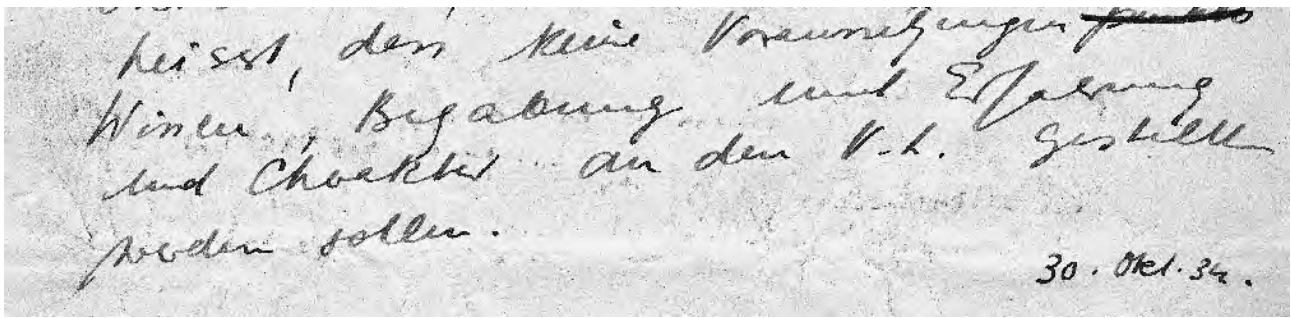 heisst, dass keine Voraussetzungen
Wissen, Begabung und Erfahrung
und Charakter an den V.L. gestellt
werden sollen.
30. Okt. 34.